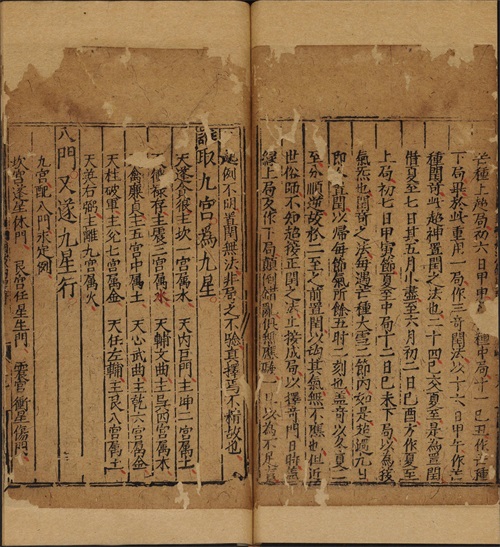 芒種上超局初六日甲申
下局畢然此重用一局作三奇閏法以十六日甲午作芒
種閏奇此超神置閏之法也二十四巳交夏至是為置閏
借夏至七日其五月小盡至六月初二日己酉方作夏至
上局初七日甲寅節夏至中局十二日己未下局以為接
氣然也閏奇之法每遇芒種大雪二節內如是超過九日
即置閏以歸每節氣所餘五時二刻也蓋奇以冬夏二
至分順逆於二至之前置閏以均其氣無不應也但近
世俗師不知超接正閏之法止按成局以擇奇門日時
經上局反作下局顛倒錯亂俱無應
起例不明置閏無法非奇之不驗真擇焉不精故也
取九宮為九星
天蓬貪狼主坎一宮屬水 天內巨門主坤二宮屬土
祿存主震三宮屬木 天輔文曲主巽四宮屬木
禽廉貞主五宮中屬土 天心武曲主乾六宮屬金
天柱破軍主兌七宮屬金 天任左輔主艮八宮屬土
天英右弼主離九宮屬火
八門又遂九星行
九宮配八門永定例
坎宮蓬星休門 艮宮任星生門 震宮衝星傷門